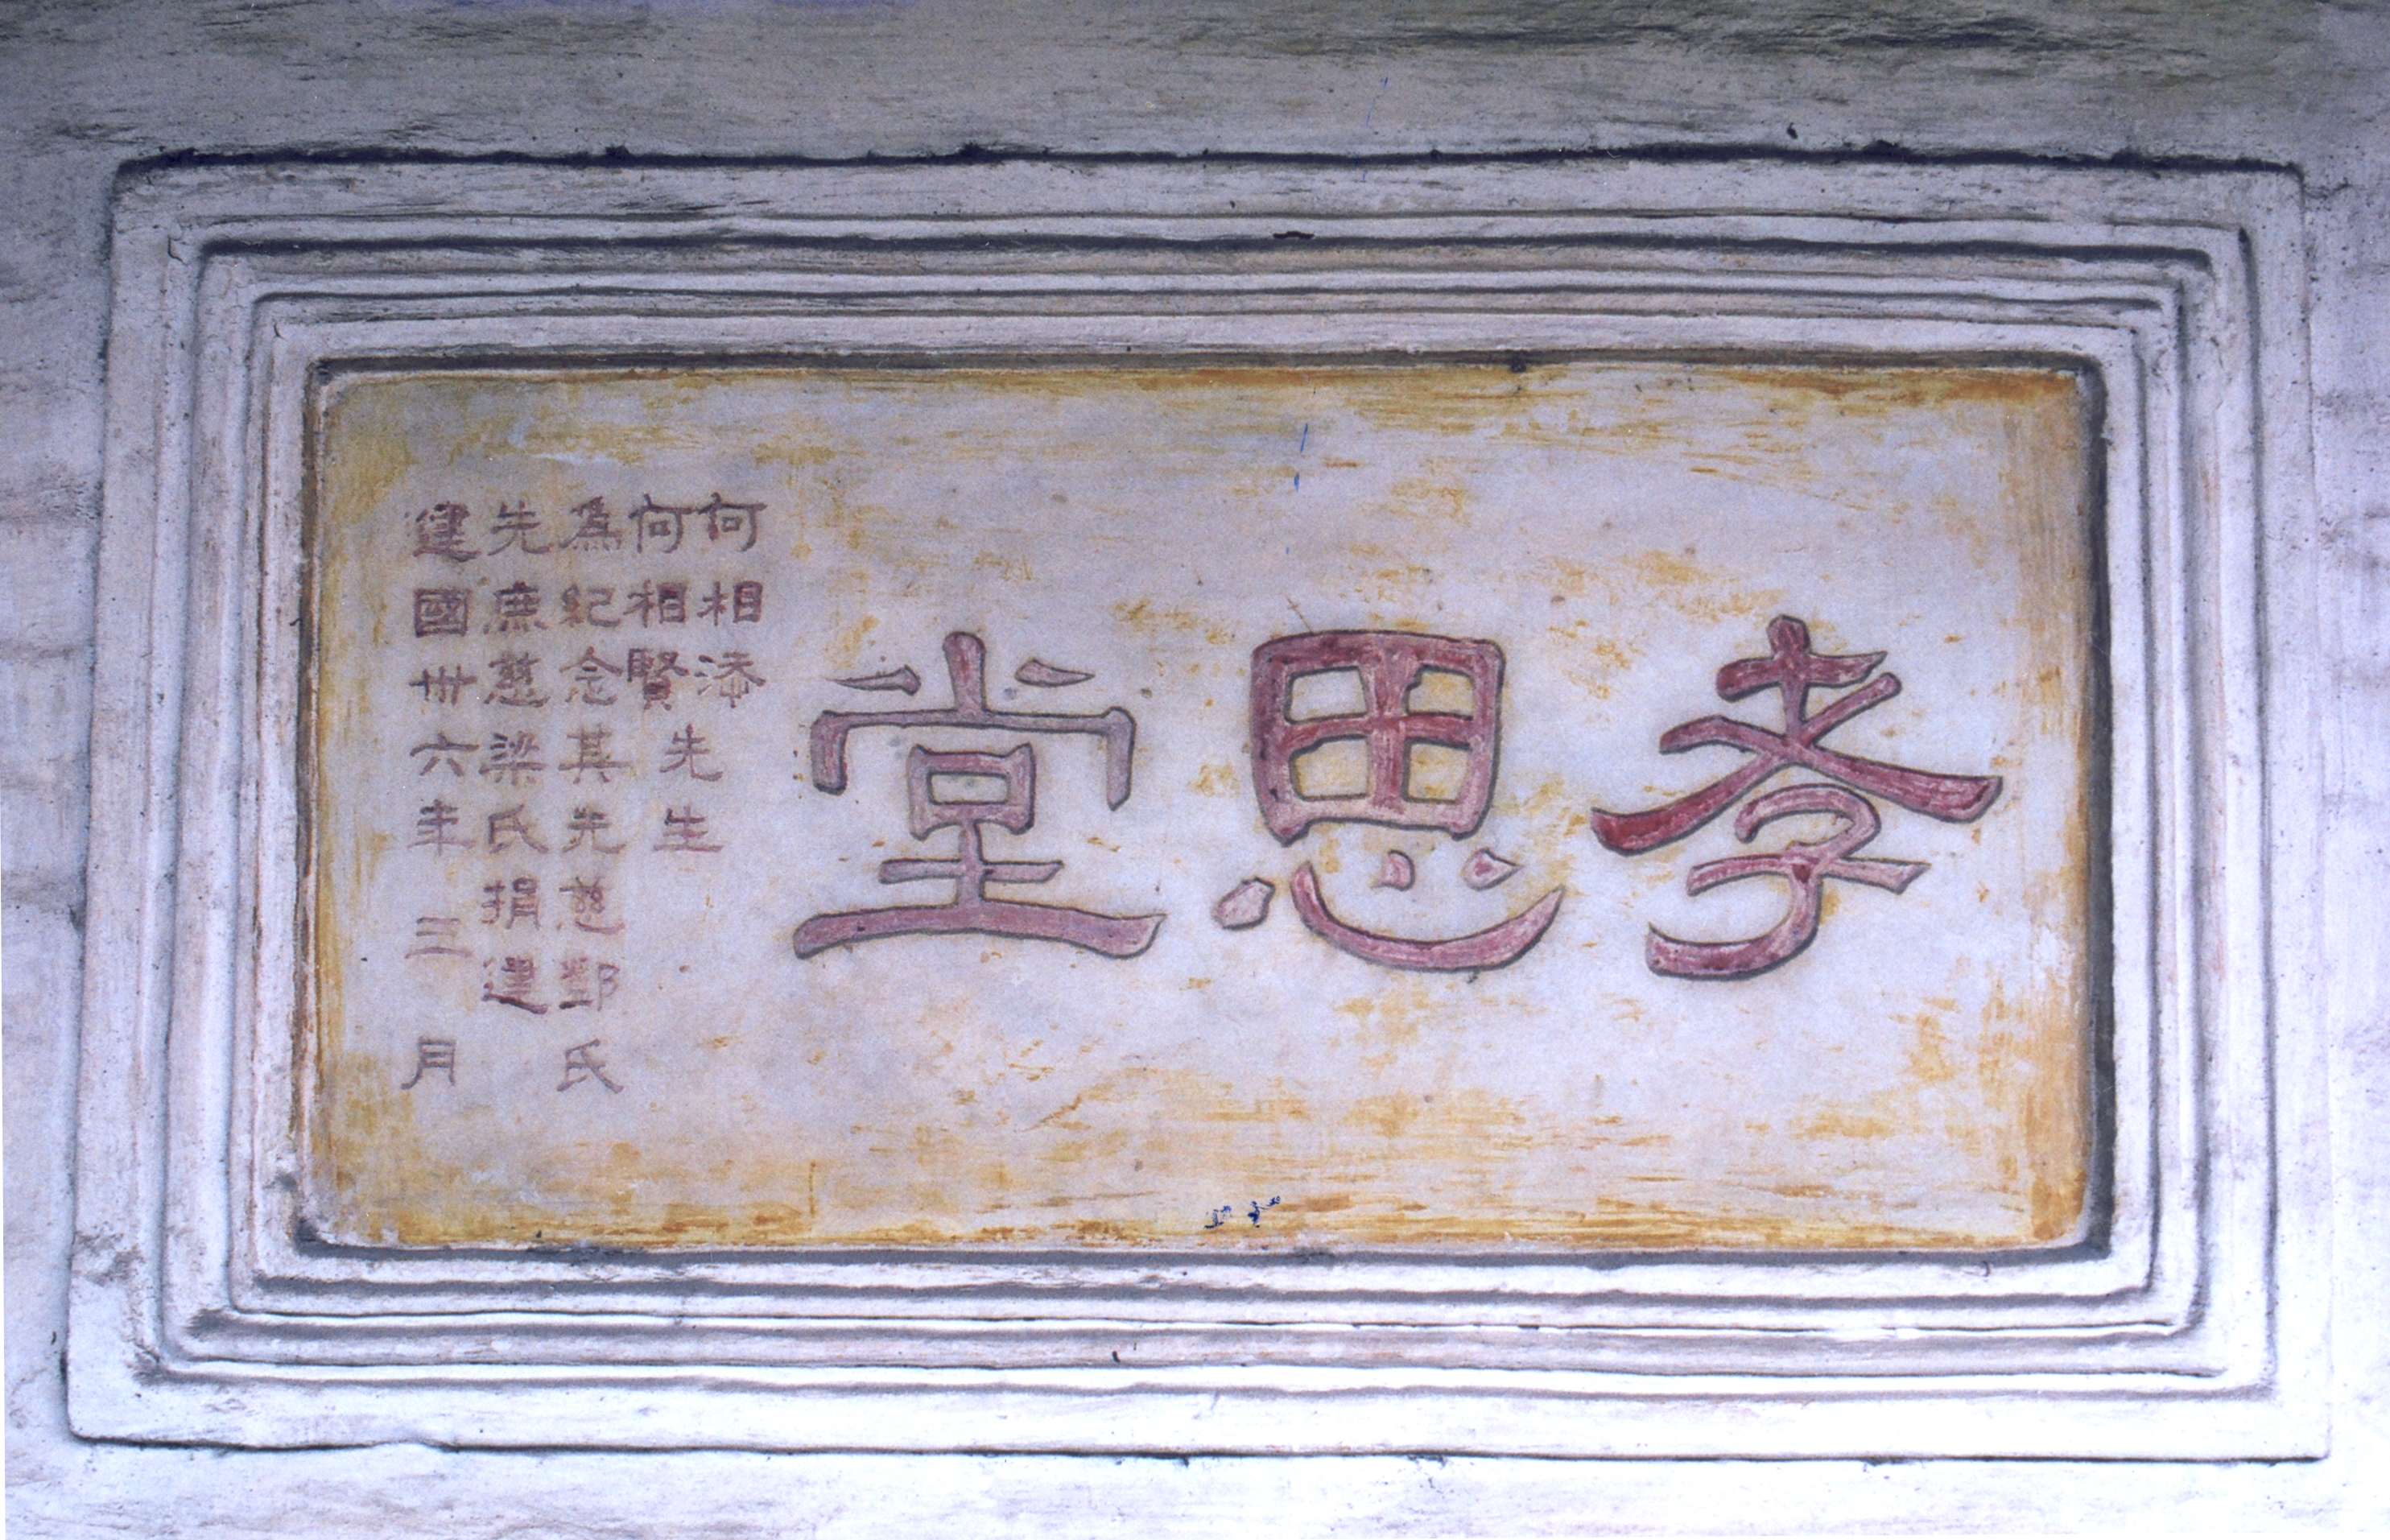 孝思堂
何相添
何相賢
先生
為紀念其先慈鄧氏
先庶慈梁氏捐建
建國卅六年三月